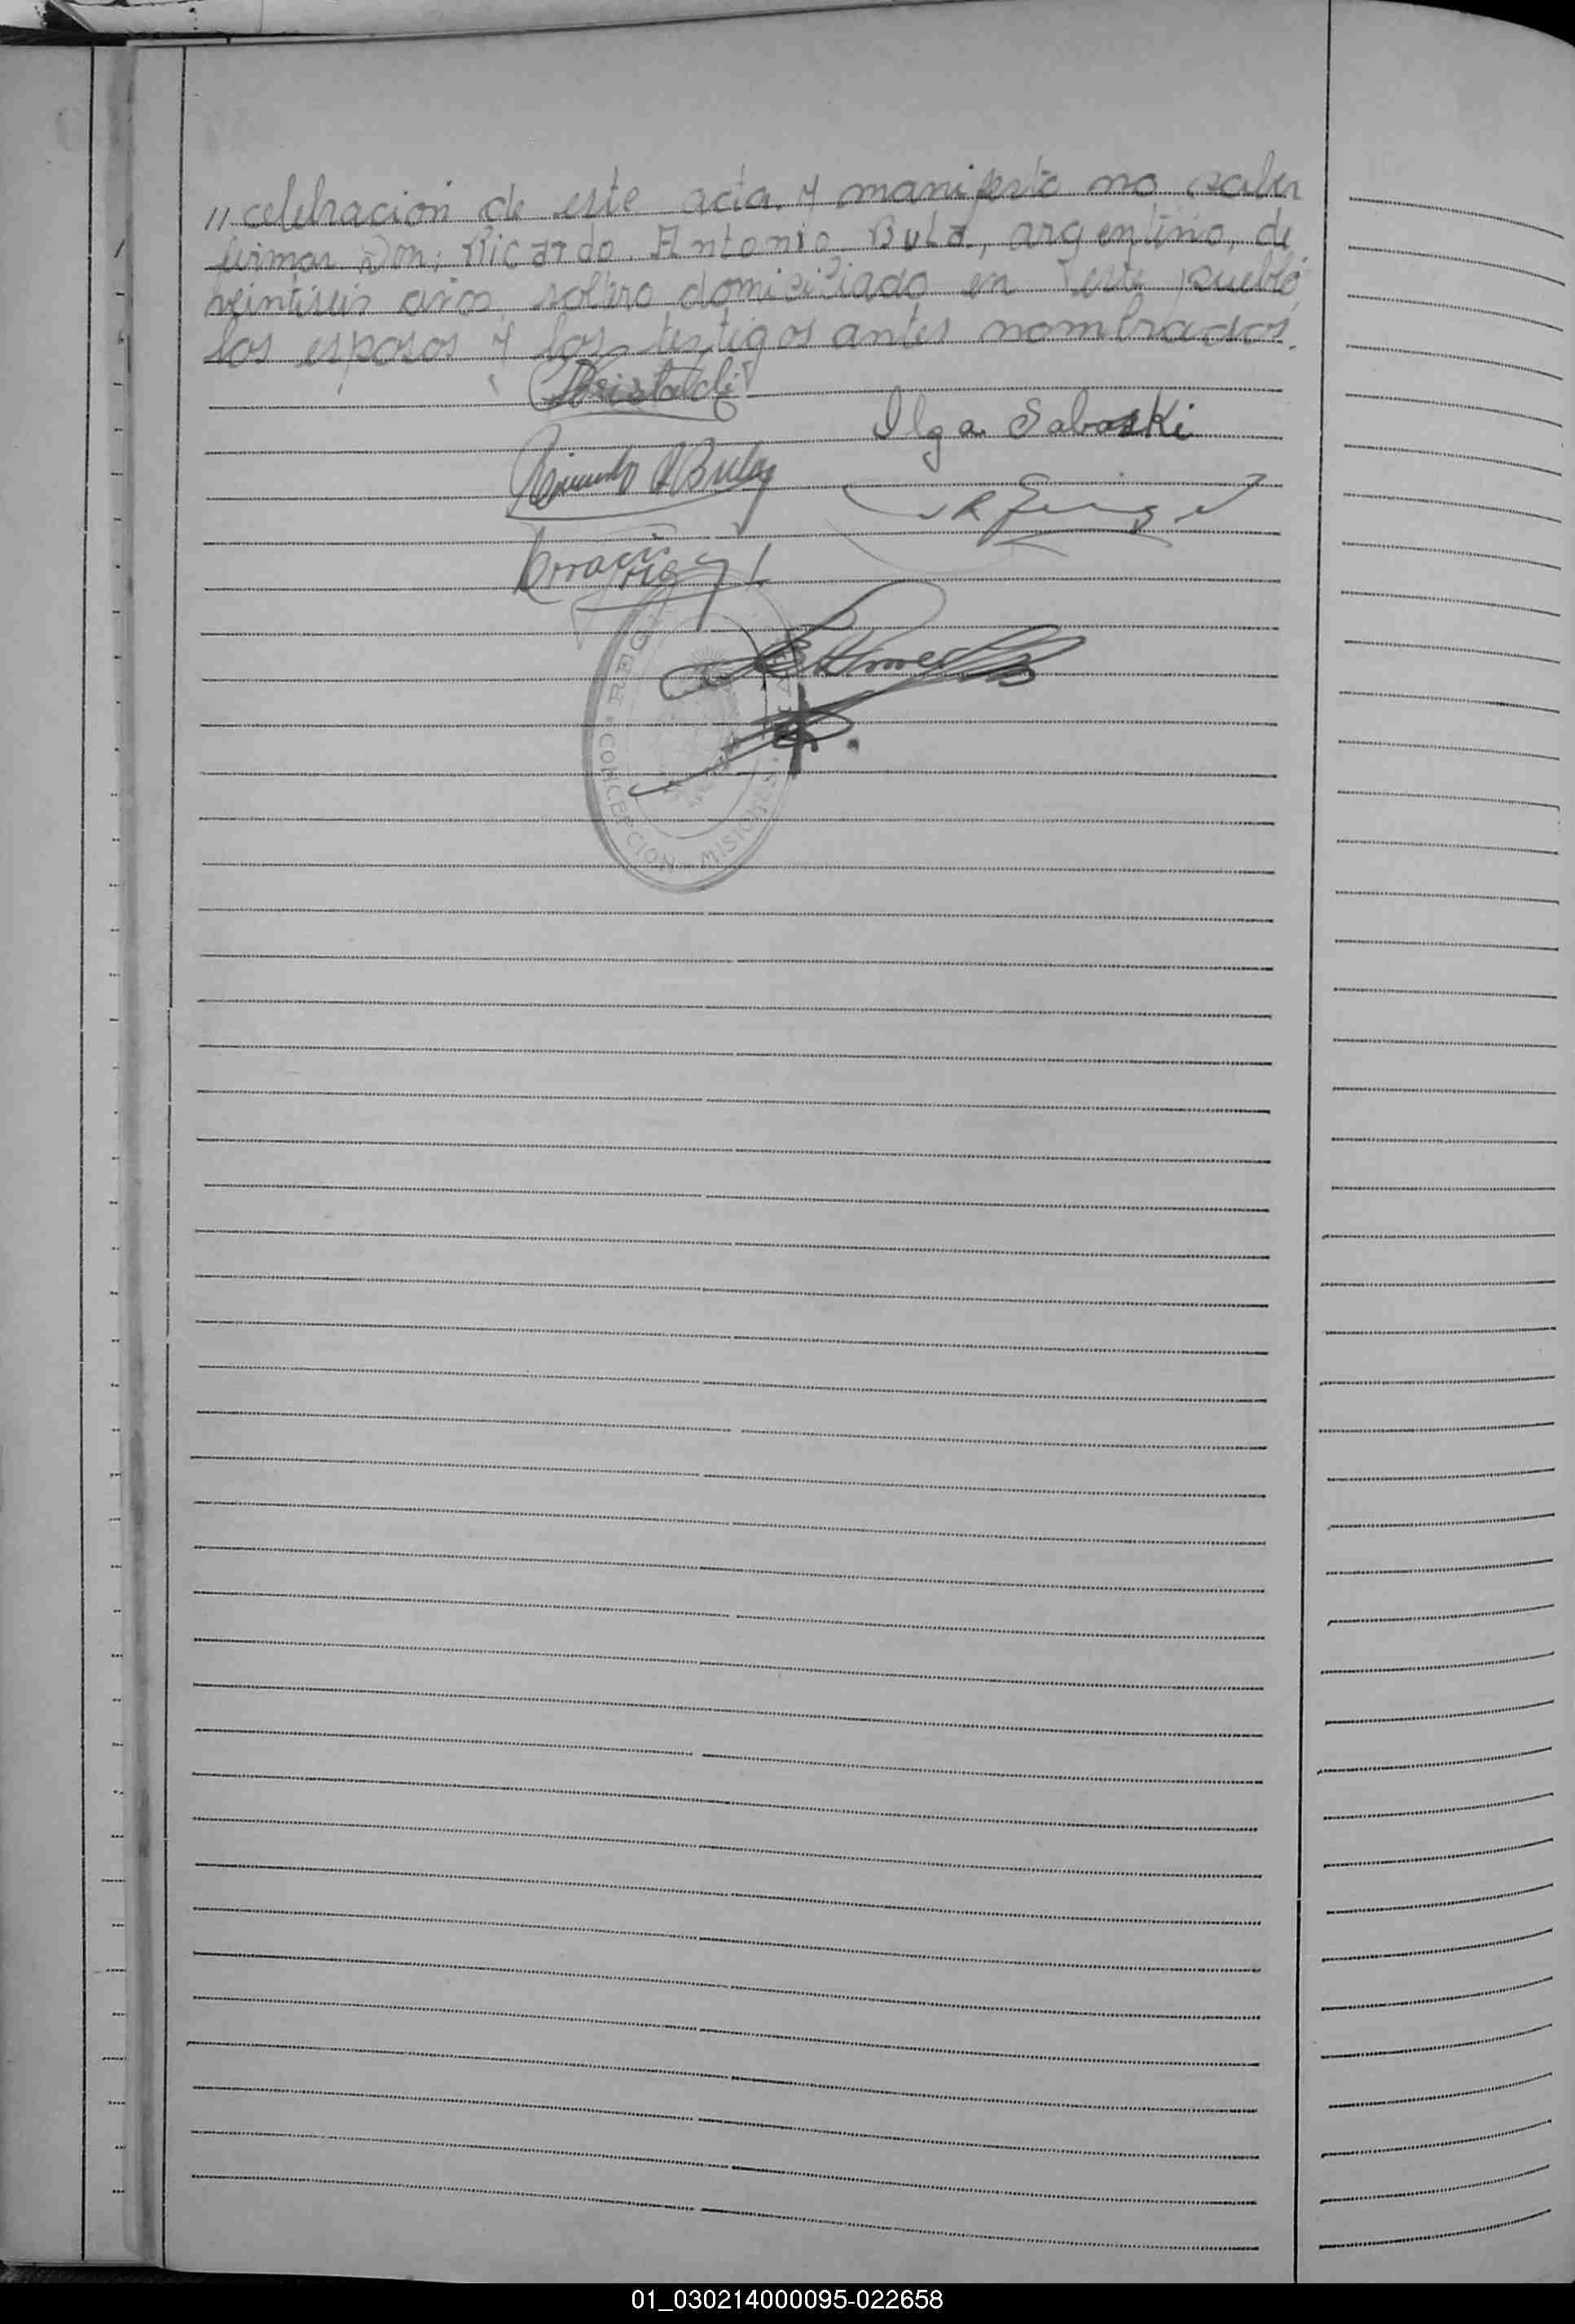 // celebracion de este acta. y manifesto no saber
firmar Don: Ricardo. Antonio. Bula, argentino, de
veintiseis años soltero domiciliado en este pueblo,
los esposos y los testigos antes nombrados.
Ilga Sabaski
Ricardo A Bula
CONCEPCION - MISIONES
01_030214000095-022658